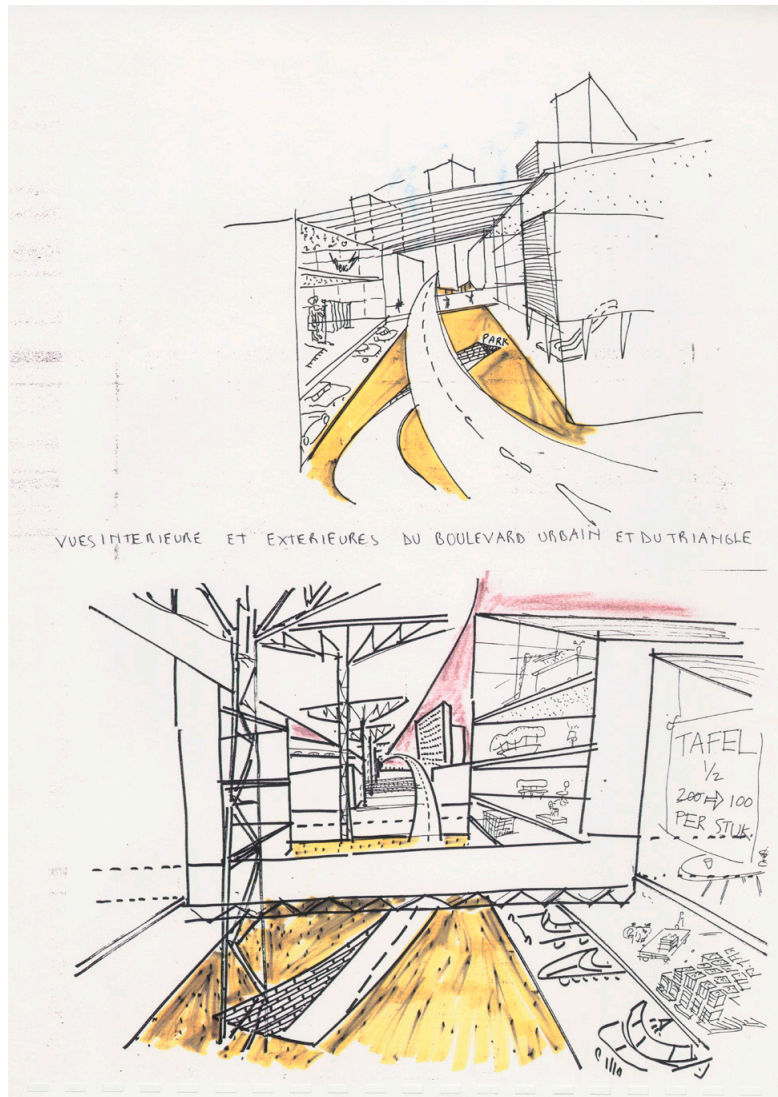 PARK
VUES INTERIEURE ET EXTERIEURES DU BOULEVARD URBAIN ET DU TRIANGLE
TAFEL
1/2
200 ⇨ 100
PER STUK.